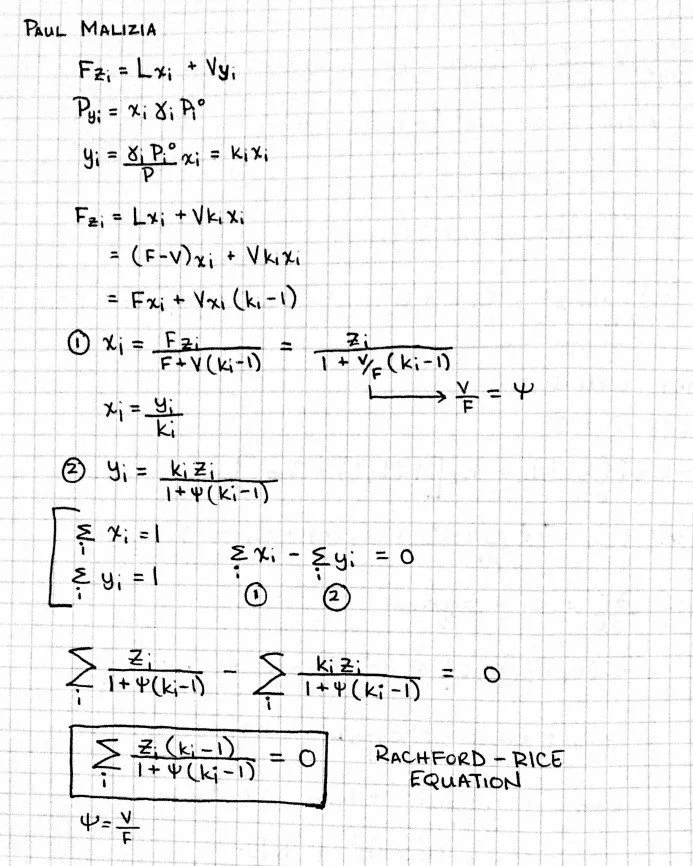 PAUL MALIZIA
Fzᵢ = Lxᵢ + Vyᵢ
Pyᵢ = xᵢ γᵢ Pᵢ°
yᵢ = γᵢ Pᵢ°/P xᵢ = kᵢxᵢ
Fzᵢ = Lxᵢ + Vkᵢxᵢ
= (F-V)xᵢ + Vkᵢxᵢ
= Fxᵢ + Vxᵢ (kᵢ-1)
① xᵢ = Fzᵢ/(F+V(kᵢ-1)) = zᵢ/(1 + V/F (kᵢ-1))
→ V/F = ψ
xᵢ = yᵢ/kᵢ
② yᵢ = kᵢzᵢ/(1+ψ(kᵢ-1))
Σᵢ xᵢ = 1
Σᵢ yᵢ = 1
Σᵢ xᵢ - Σᵢ yᵢ = 0
① ②
Σᵢ zᵢ/(1+ψ(kᵢ-1)) - Σᵢ kᵢzᵢ/(1+ψ(kᵢ-1)) = 0
Σᵢ zᵢ(kᵢ-1)/(1+ψ(kᵢ-1)) = 0
RACHFORD-RICE
EQUATION
ψ = V/F